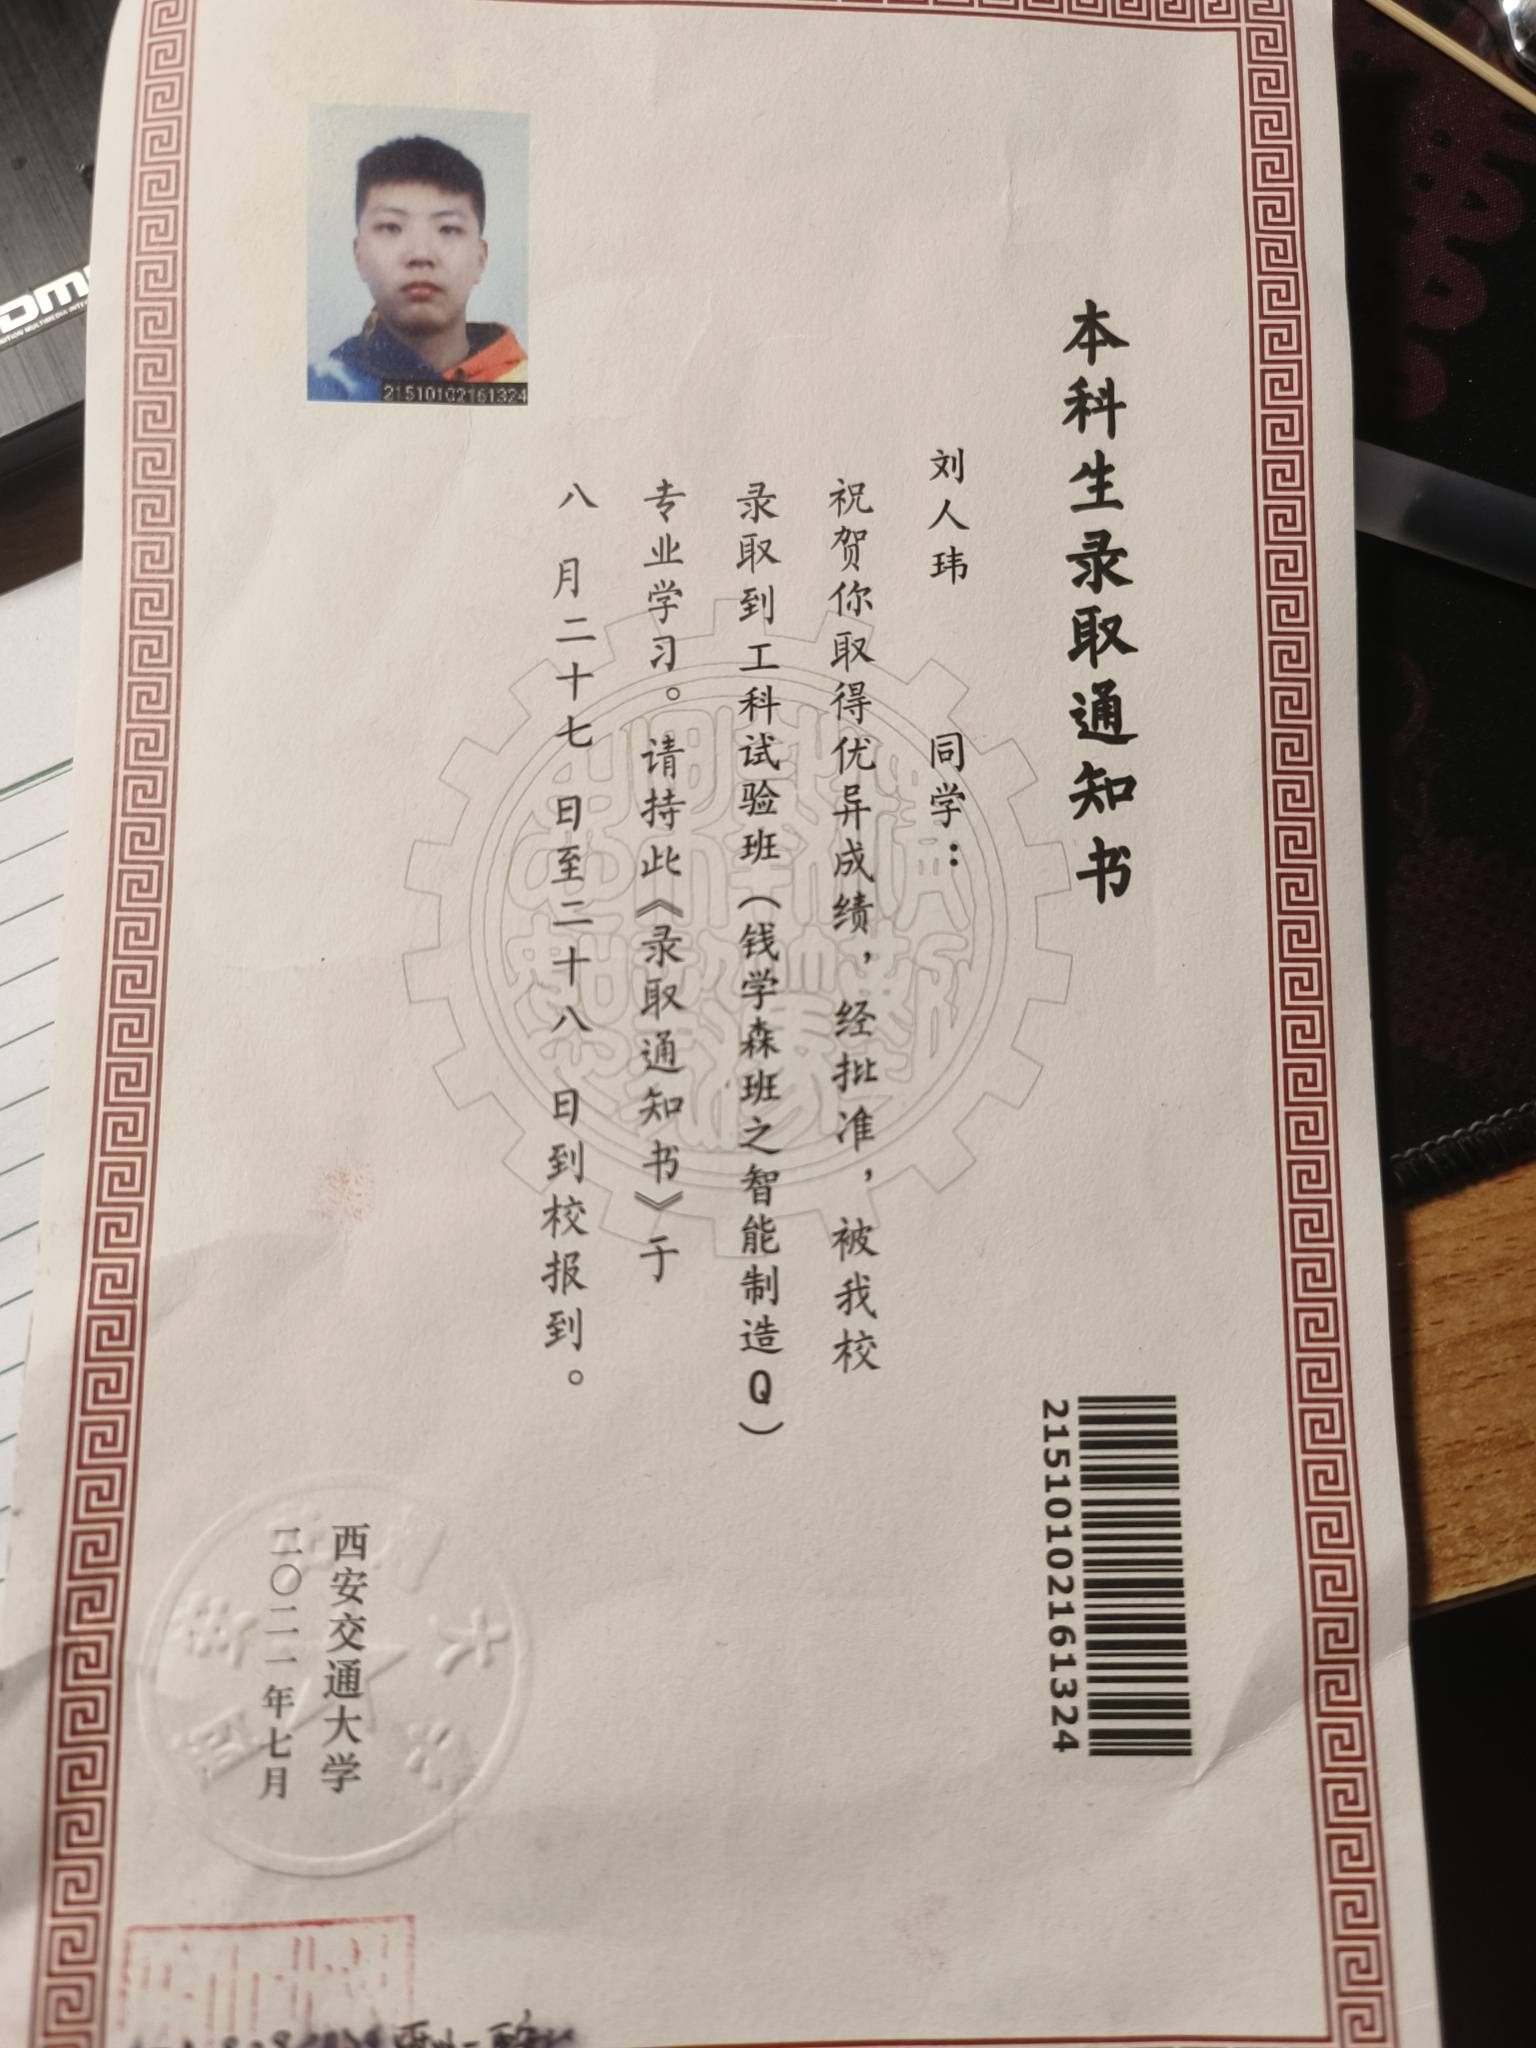 本科生录取通知书
刘人玮 同学：
祝贺你取得优异成绩，经批准，被我校
录取到工科试验班（钱学森班之智能制造Q）
专业学习。请持此《录取通知书》于
八月二十七日至二十八日到校报到。
西安交通大学
二〇二一年七月
21510102161324
21510102161324